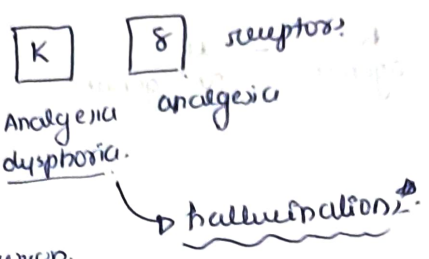 K δ receptors
Analgesia analgesia
dysphoria.
hallucinations.